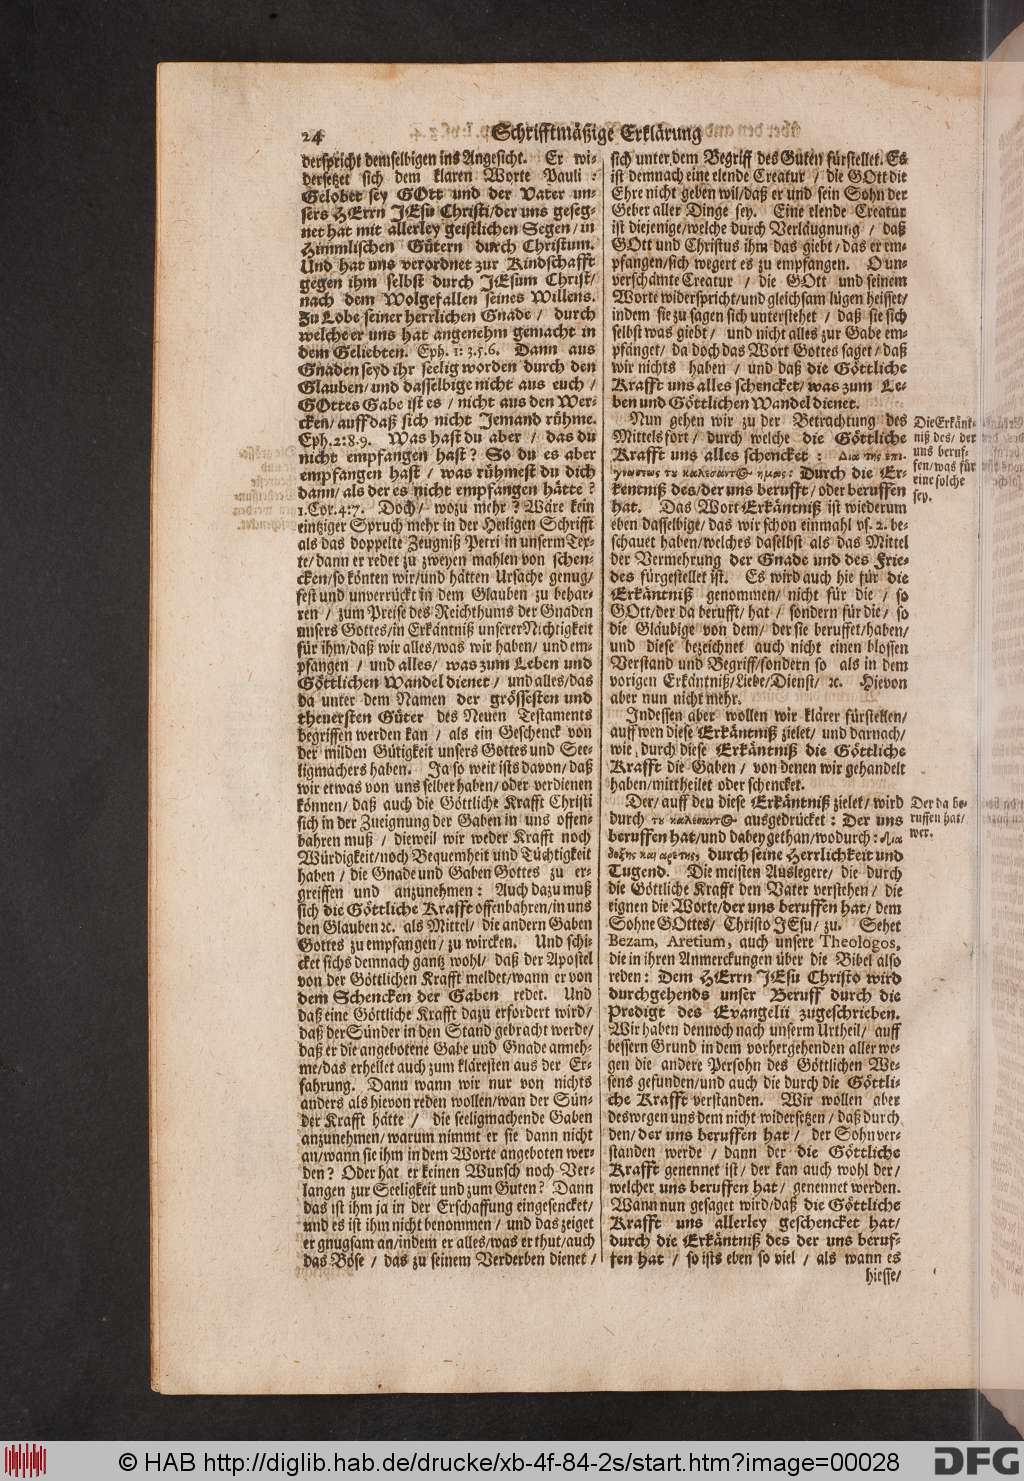 24
Schrifftmäßige Erklärung
derspricht demselbigen ins Angesicht. Er wi-
dersetzet sich dem klaren Worte Pauli:
Gelobet sey GOtt und der Vater un-
sers HErrn JEsu Christi/der uns geseg-
net hat mit allerley geistlichen Segen/in
Himmlischen Gütern durch Christum.
Und hat uns verordnet zur Kindschafft
gegen ihm selbst durch JEsum Christ/
nach dem Wolgefallen seines Willens.
Zu Lobe seiner herrlichen Gnade/ durch
welche er uns hat angenehm gemacht in
dem Geliebten. Eph. 1: 3.5.6. Dann aus
Gnaden seyd ihr seelig worden durch den
Glauben/und dasselbige nicht aus euch/
GOttes Gabe ist es/ nicht aus den Wer-
cken/auff daß sich nicht Jemand rühme.
Eph.2:8.9. Was hast du aber/ das du
nicht empfangen hast? So du es aber
empfangen hast/ was rühmest du dich
dann/als der es nicht empfangen hätte?
1.Cor.4:7. Doch/ wozu mehr? Wäre kein
eintziger Spruch mehr in der Heiligen Schrifft
als das doppelte Zeugniß Petri in unserm Tex-
te/dann er redet zu zweyen mahlen von schen-
cken/so könten wir/und hätten Ursache genug/
fest und unverrückt in dem Glauben zu behar-
ren / zum Preise des Reichthums der Gnaden
unsers Gottes/in Erkäntniß unserer Nichtigkeit
für ihm/daß wir alles/was wir haben/ und em-
pfangen / und alles/ was zum Leben und
Göttlichen Wandel dienet/ und alles/das
da unter dem Namen der grössesten und
theuersten Güter des Neuen Testaments
begriffen werden kan/ als ein Geschenck von
der milden Gütigkeit unsers Gottes und See-
ligmachers haben. Ja so weit ists davon/daß
wir etwas von uns selber haben/oder verdienen
können/ daß auch die Göttliche Krafft Christi
sich in der Zueignung der Gaben in uns offen-
bahren muß / dieweil wir weder Krafft noch
Würdigkeit/noch Bequemheit und Tüchtigkeit
haben/ die Gnade und Gaben Gottes zu er-
greiffen und anzunehmen: Auch dazu muß
sich die Göttliche Krafft offenbahren/in uns
den Glauben ꝛc. als Mittel/ die andern Gaben
Gottes zu empfangen/ zu wircken. Und schi-
cket sichs demnach gantz wohl/ daß der Apostel
von der Göttlichen Krafft meldet/wann er von
dem Schencken der Gaben redet. Und
daß eine Göttliche Krafft dazu erfordert wird/
daß der Sünder in den Stand gebracht werde/
daß er die angebotene Gabe und Gnade anneh-
me/das erhellet auch zum kläresten aus der Er-
fahrung. Dann wann wir nur von nichts
anders als hievon reden wollen/wan der Sün-
der Krafft hätte/ die seeligmachende Gaben
anzunehmen/warum nimmt er sie dann nicht
an/wann sie ihm in dem Worte angeboten wer-
den? Oder hat er keinen Wunsch noch Ver-
langen zur Seeligkeit und zum Guten? Dann
das ist ihm ja in der Erschaffung eingesencket/
und es ist ihm nicht benommen/ und das zeiget
er gnugsam an/indem er alles/was er thut/auch
das Böse/ das zu seinem Verderben dienet/
sich unter dem Begriff des Guten fürstellet. Es
ist demnach eine elende Creatur/ die GOtt die
Ehre nicht geben wil/daß er und sein Sohn der
Geber aller Dinge sey. Eine elende Creatur
ist diejenige/welche durch Verläugnung / daß
GOtt und Christus ihm das giebt/das er em-
pfangen/sich wegert es zu empfangen. O un-
verschämte Creatur/ die GOtt und seinem
Worte widerspricht/und gleichsam lügen heisset/
indem sie zu sagen sich unterstehet/ daß sie sich
selbst was giebt/ und nicht alles zur Gabe em-
pfänget/ da doch das Wort Gottes saget/daß
wir nichts haben/ und daß die Göttliche
Krafft uns alles schencket/was zum Le-
ben und Göttlichen Wandel dienet.
Nun gehen wir zu der Betrachtung des
Mittels fort/ durch welche die Göttliche
Krafft uns alles schencket: δια της επι-
γνωσεως του καλεσαντος ημας: Durch die Er-
kentniß des/der uns berufft/oder beruffen
hat. Das Wort Erkäntniß ist wiederum
eben dasselbige/das wir schon einmahl vs. 2. be-
schauet haben/welches daselbst als das Mittel
der Vermehrung der Gnade und des Frie-
des fürgestellet ist. Es wird auch hie für die
Erkäntniß genommen/ nicht für die/ so
GOtt/der da berufft/hat/ sondern für die/ so
die Gläubige von dem/ der sie beruffet/haben/
und diese bezeichnet auch nicht einen blossen
Verstand und Begriff/sondern so als in dem
vorigen Erkäntniß/Liebe/Dienst/ ꝛc. Hievon
aber nun nicht mehr.
Indessen aber wollen wir klärer fürstellen/
auff wen diese Erkäntniß zielet/ und darnach/
wie durch diese Erkäntniß die Göttliche
Krafft die Gaben/ von denen wir gehandelt
haben/mittheilet oder schencket.
Der/ auff den diese Erkäntniß zielet/ wird
durch του καλεσαντος ausgedrücket: Der uns
beruffen hat/und dabey gethan/wodurch: δια
δοξης και αρετης, durch seine Herrlichkeit und
Tugend. Die meisten Auslegere/ die durch
die Göttliche Krafft den Vater verstehen/ die
eignen die Worte/der uns beruffen hat/ dem
Sohne GOttes/ Christo JEsu/ zu. Sehet
Bezam, Aretium, auch unsere Theologos,
die in ihren Anmerckungen über die Bibel also
reden: Dem HErrn JEsu Christo wird
durchgehends unser Beruff durch die
Predigt des Evangelii zugeschrieben.
Wir haben dennoch nach unserm Urtheil/ auff
bessern Grund in dem vorhergehenden allerwe-
gen die andere Persohn des Göttlichen We-
sens gefunden/und auch die durch die Göttli-
che Krafft verstanden. Wir wollen aber
deswegen uns dem nicht widersetzen/ daß durch
den/der uns beruffen hat/ der Sohn ver-
standen werde/ dann der die Göttliche
Krafft genennet ist/ der kan auch wohl der/
welcher uns beruffen hat/ genennet werden.
Wann nun gesaget wird/daß die Göttliche
Krafft uns allerley geschencket hat/
durch die Erkäntniß des der uns beruf-
fen hat/ so ists eben so viel/ als wann es
hiesse/
Die Erkänt-
niß des/ der
uns beruf-
fen/was für
eine solche
sey.
Der da be-
ruffen hat/
wer.
© HAB http://diglib.hab.de/drucke/xb-4f-84-2s/start.htm?image=00028
DFG